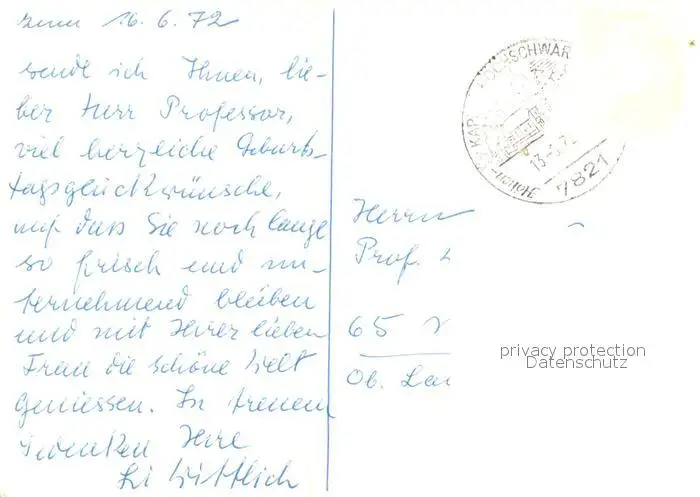 zum 16.6.72
sende ich Ihnen, lie-
ber Herr Professor,
viel herzliche Geburts-
tagsglückwünsche,
auf dass Sie noch lange
so frisch und un-
ternehmend bleiben
und mit Ihrer lieben
Frau die schöne Welt
geniessen. In treuem
Gedenken Ihre
Wittlich
HOCHSCHWAR
KAP
13.-6.72
7821
Herrn
Prof.
65
Ob. Lau
privacy protection
Datenschutz